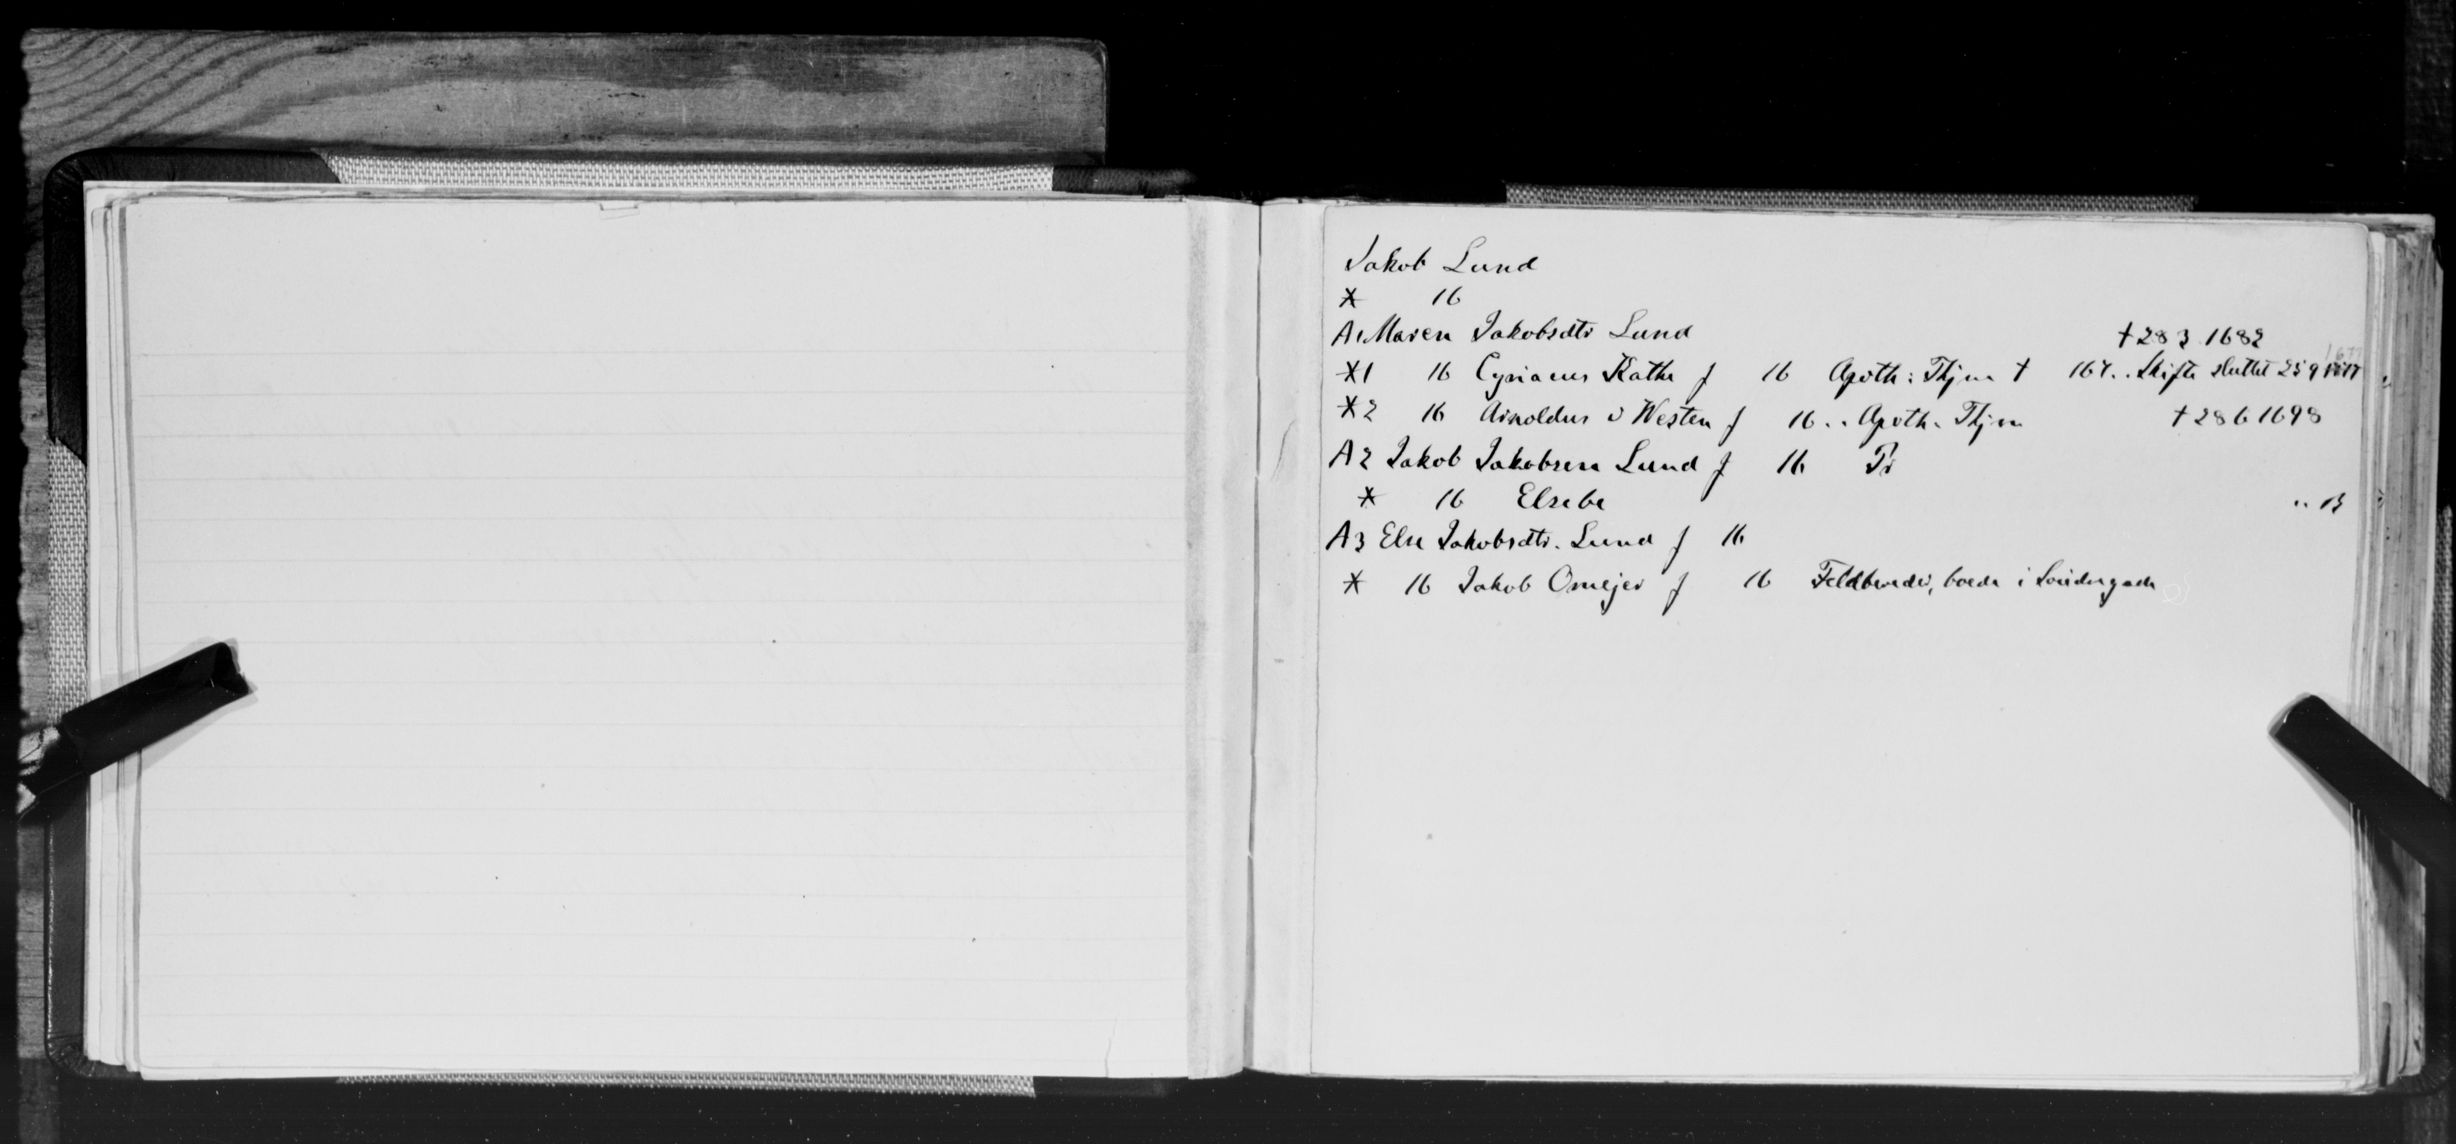 Jakob Lund
* 16
A1 Maren Jakobsdtr Lund † 28 3 1682
*1 16 Cyriacus Kathe f 16 Apoth: Thjm † 167.. Skifte sluttet 25 9 1677
*2 16 Arnoldus v Westen f 16.. Apoth. Thjm † 28 6 1698
A2 Jakob Jakobsen Lund f 16 Tr
* 16 Elsebe .. B
A3 Else Jakobsdtr. Lund f 16
* 16 Jakob Omejer f 16 Feldbereder, boede i Söndergade